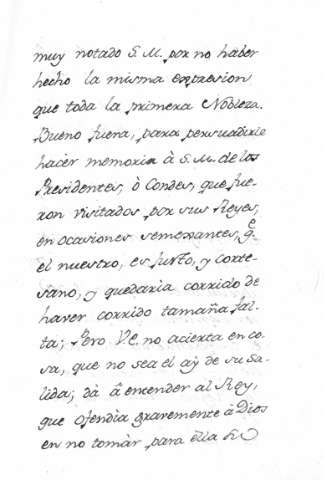 muy notado S. M. por no haber
hecho la misma expresion
que toda la primera Nobleza.
Bueno fuera, para persuadirle
hacer memoria à S. M. de los
Presidentes, ò Condes, que fue-
ron visitados por sus Reyes,
en ocasiones semejantes, q̃
el nuestro, es justo, y corte-
sano, y quedaria corrido de
haver corrido tamaña fal-
ta; Pero V.E. no acierta en co-
sa, que no sea el aỳ de su sa-
lida; dà â entender al Rey,
que ofendia gravemente à Dios
en no tomàr para ella